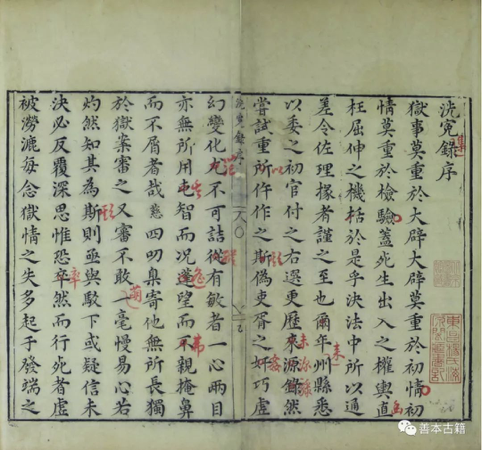 洗冤錄序
獄事莫重於大辟大辟莫重於初情初
情莫重於檢驗蓋死生出入之權輿直
枉屈伸之機括於是乎決法中所以通
差令佐理掾者謹之至也爾年州縣悉
以委之初官付之右選更歷來源餘然
嘗試重所仵作之斯偽吏胥之奸巧虛
洗冤錄序
幻變化尤不可詰從有敏者一心兩目
亦無所用屯智而况蓬望而不親掩鼻
而不屑者哉慈四叨臬寄他無所長獨
於獄案審之又審不敢一毫慢易心若
灼然知其為斯則亟與駁下或疑信未
決必反覆深思惟恐卒然而行死者虛
被澇漉每念獄情之失多起于發端之
善本古籍